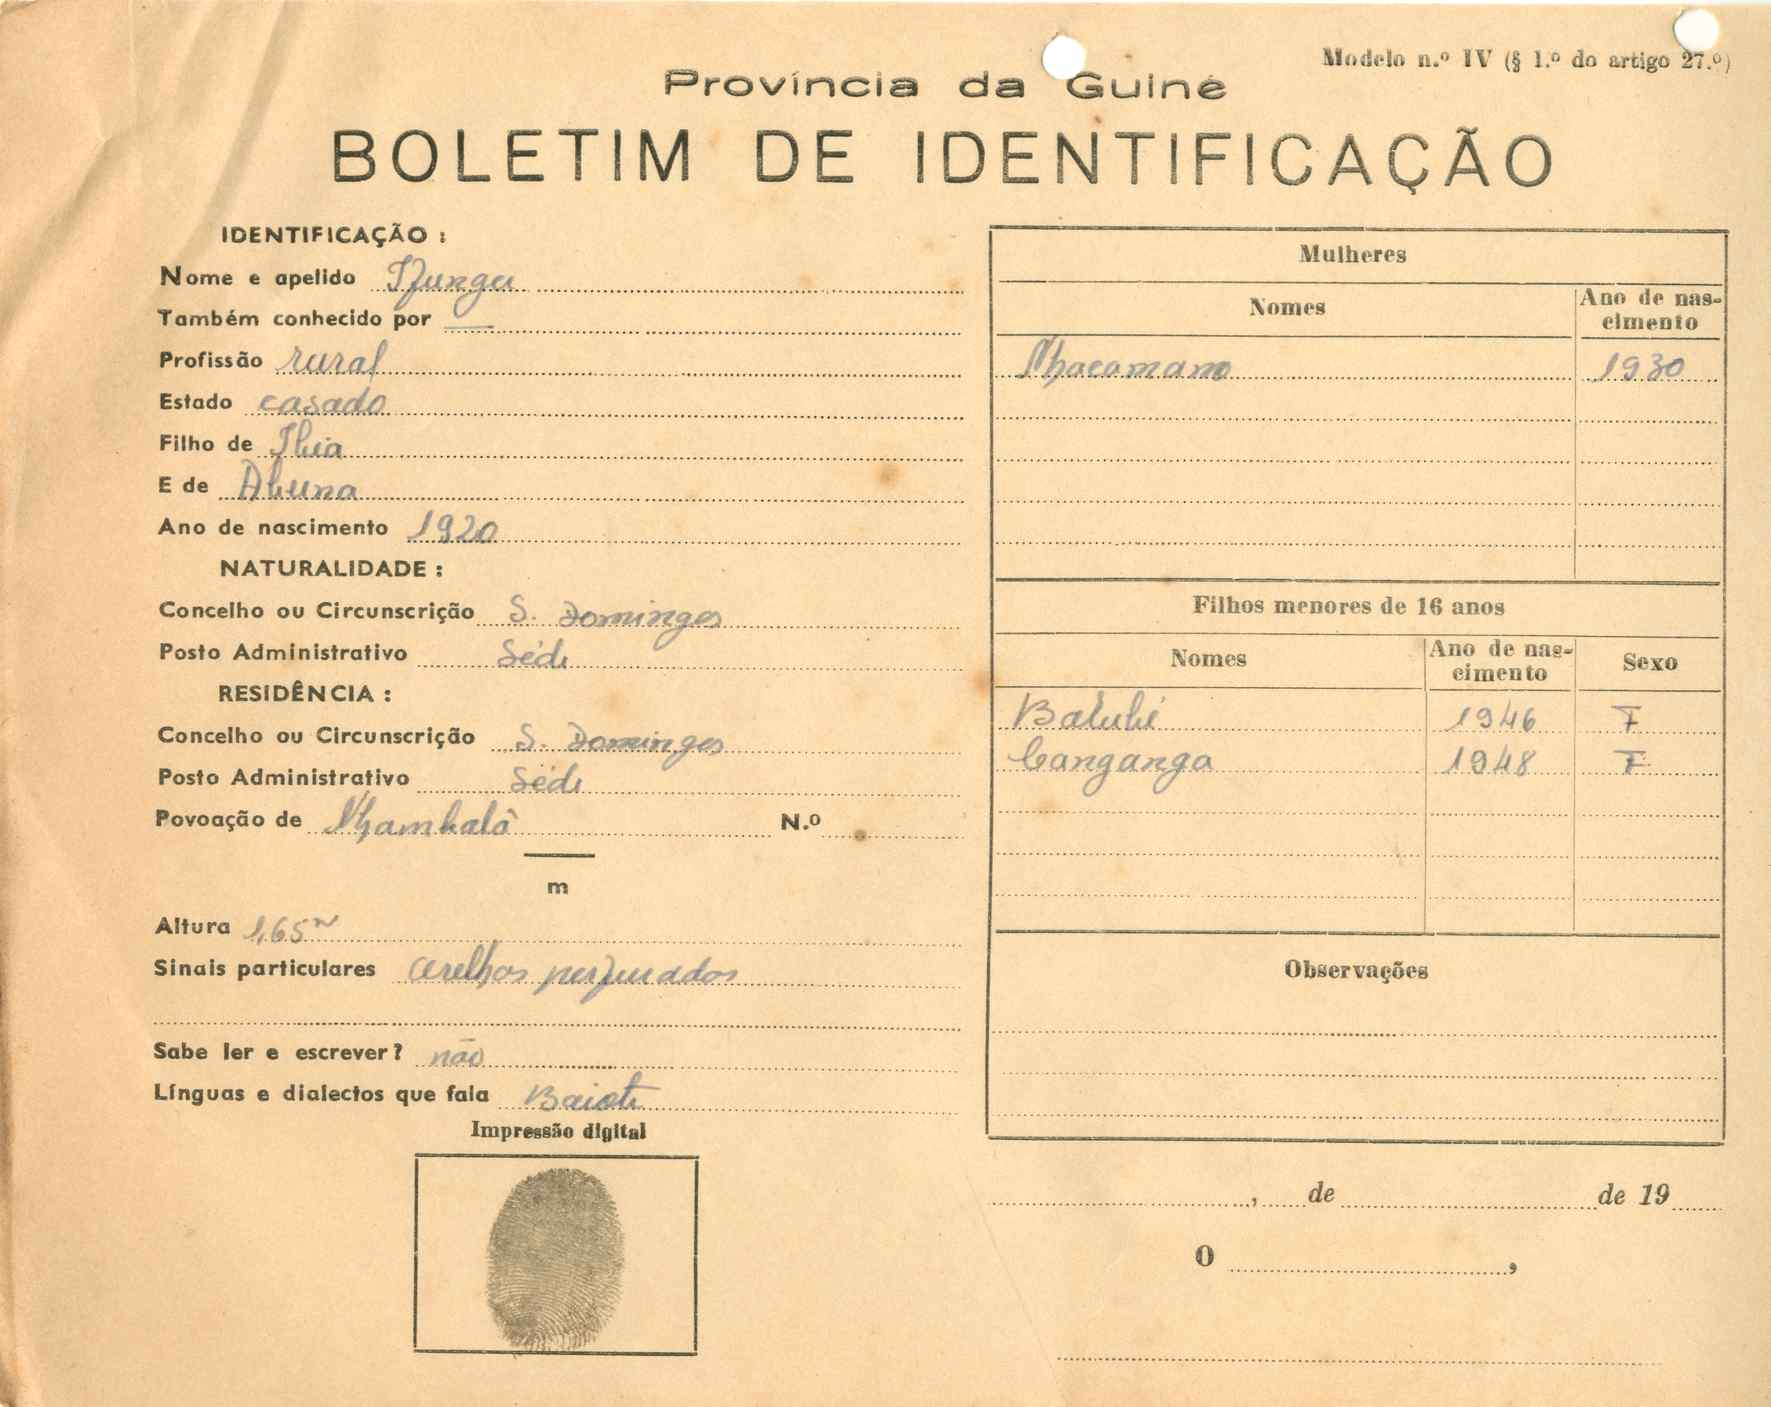 Modelo n.º IV (§ 1.º do artigo 27.º)
Província da Guiné
BOLETIM DE IDENTIFICAÇÃO
IDENTIFICAÇÃO :
Nome e apelido
Também conhecido por —
Profissão rural
Estado casado
Filho de
E de
Ano de nascimento 1920
NATURALIDADE :
Concelho ou Circunscrição S. Domingos
Posto Administrativo Séde
RESIDÊNCIA :
Concelho ou Circunscrição S. Domingos
Posto Administrativo Séde
Povoação de N.º
m
Altura 1,65m
Sinais particulares orelhas perfuradas
Sabe ler e escrever? não
Línguas e dialectos que fala Baiote
Impressão digital
Mulheres
Nomes Ano de nas-
cimento
Nhacamano 1930
Filhos menores de 16 anos
Nomes Ano de nas-
cimento Sexo
1946 F
Canganga 1948 F
Observações
, de de 19
O ,